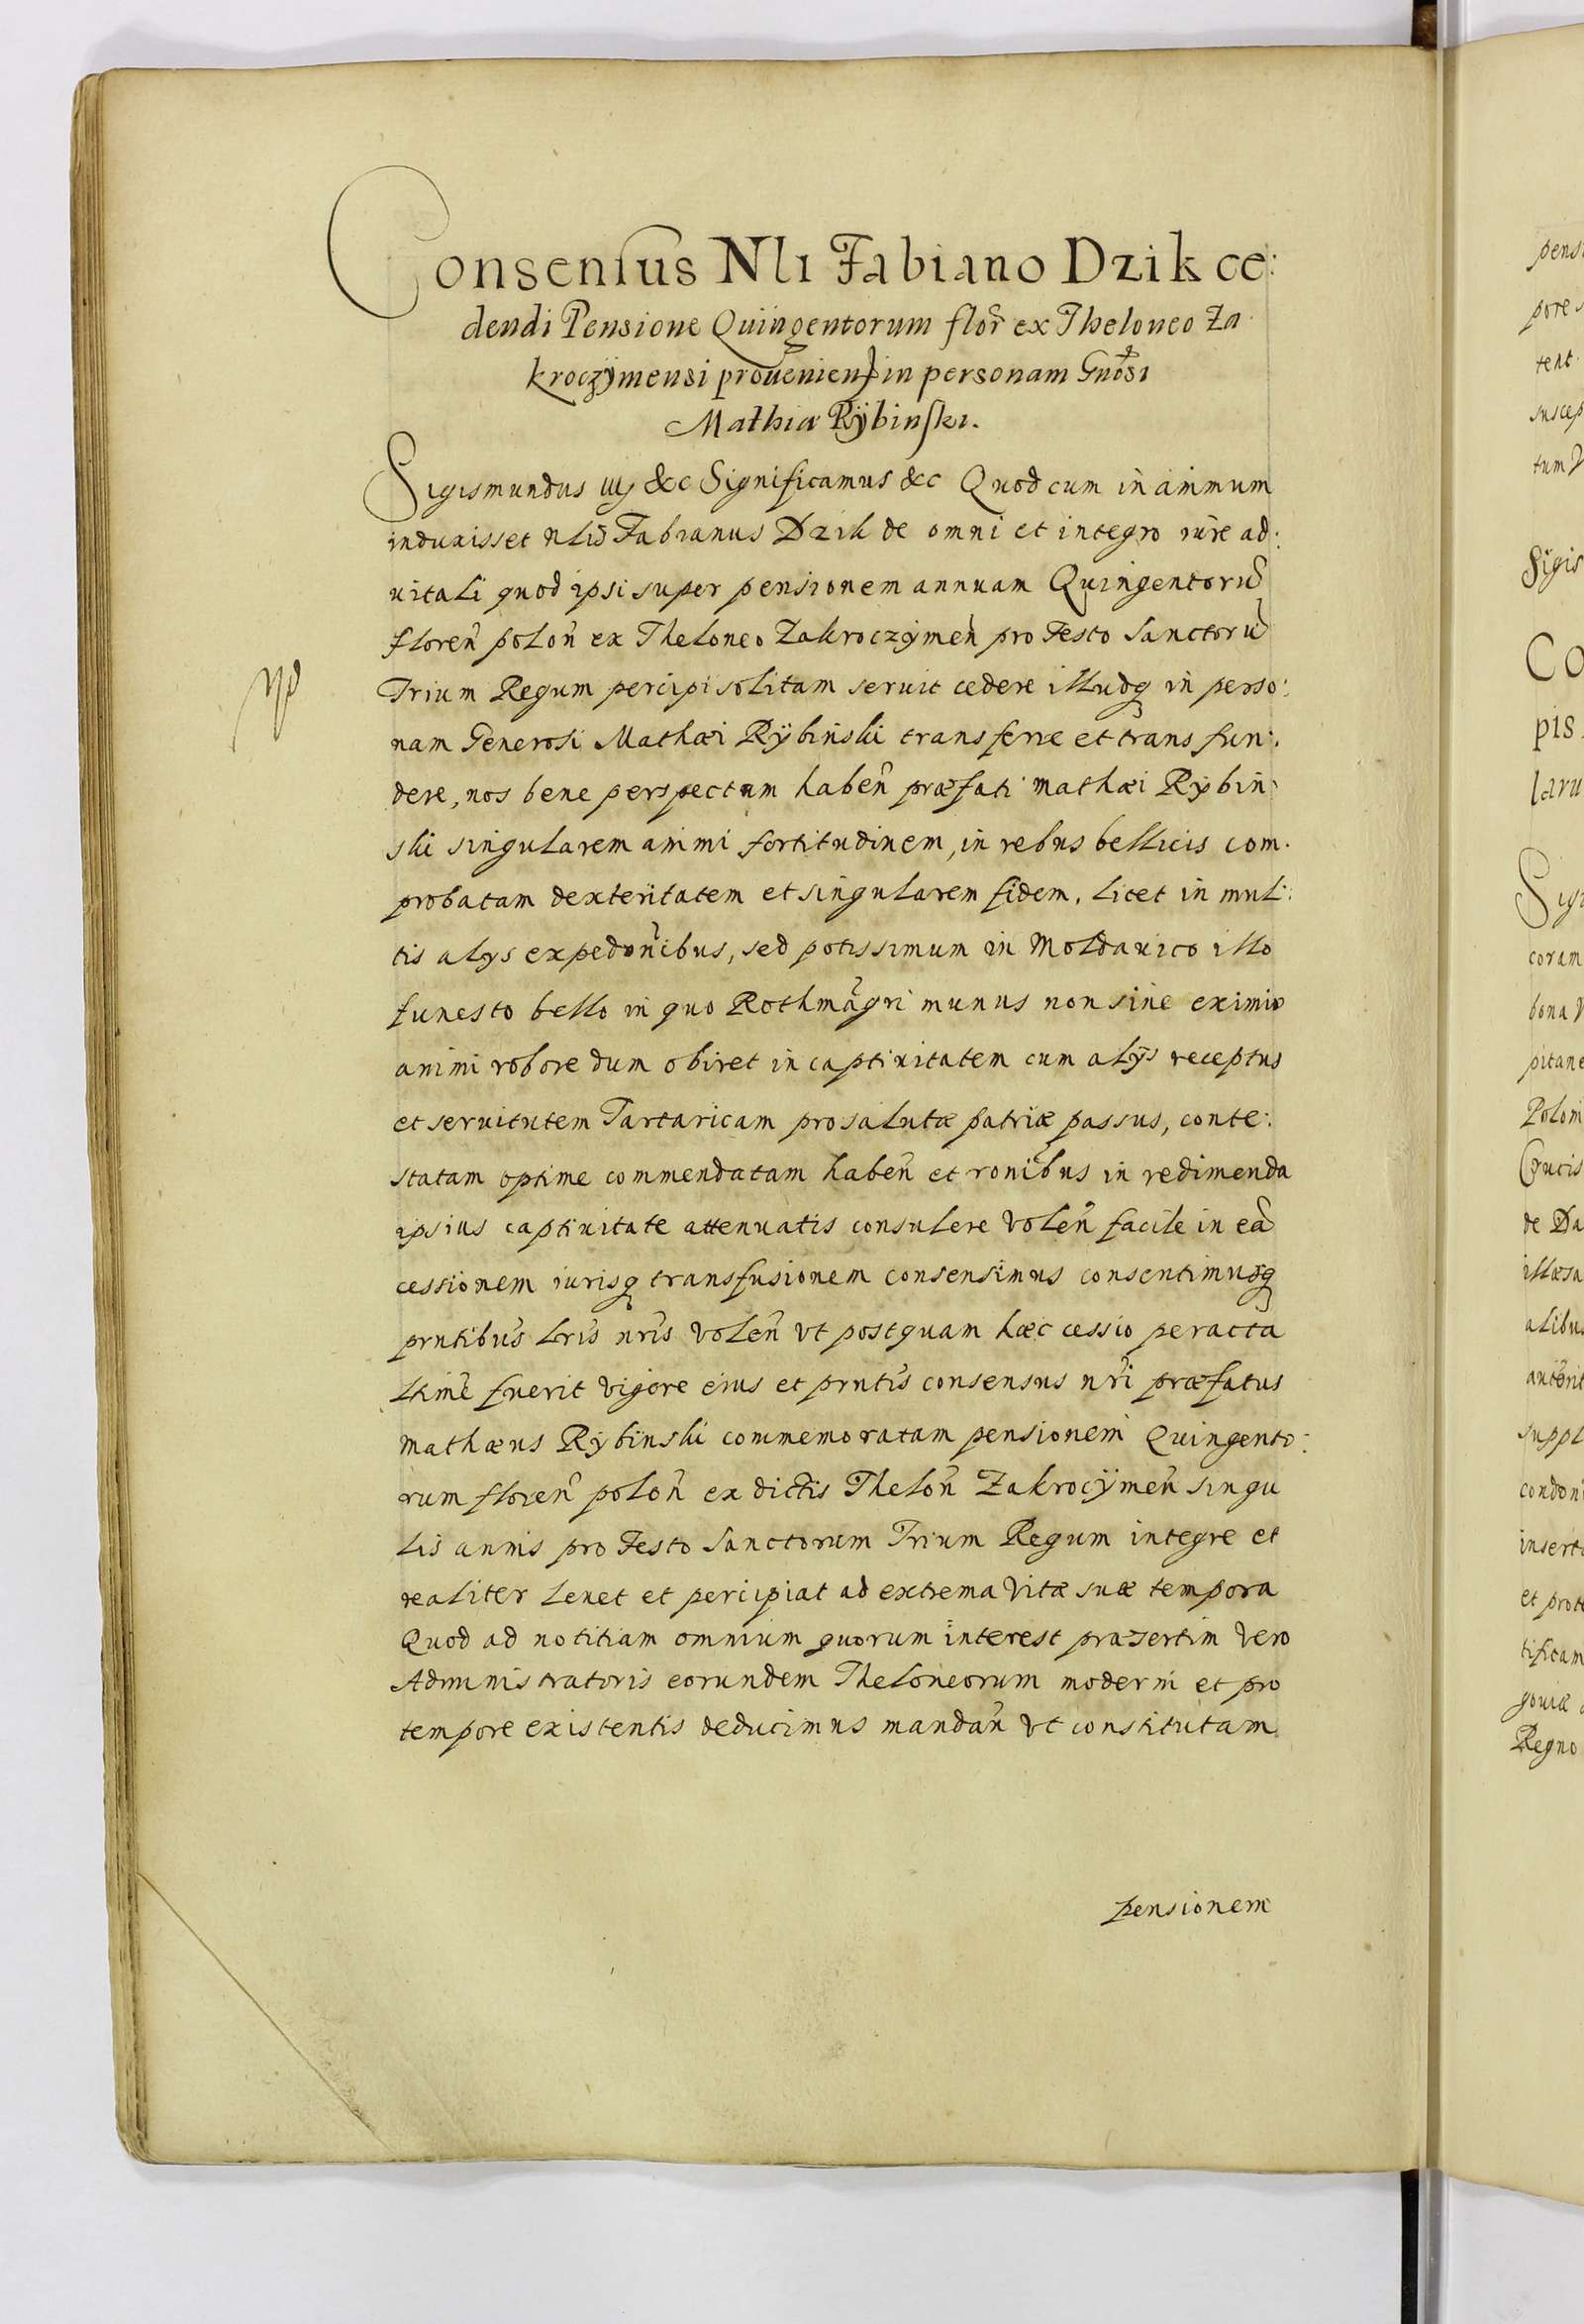 Consensus Nli Fabiano Dzik ce:
dendi Pensione Quingentorum flor̃ ex Theloneo Za
kroczÿmensi proũenien in personam Gnõsi
Mathiæ Rÿbinski.
Sigismundus iij &c Significamus &c Quod cum in animum
induxisset nlis Fabianus Dzik de omni et integro iure ad:
uitali quod ipsi super pensionem annuam Quingentorũ
floreñ poloñ ex Theloneo Zakroczÿmeñ pro Festo Sanctorũ
Trium Regum percipi solitam seruit cedere illudq in perso:
nam Generosi Mathæi Rÿbinski transferre et transfun:
dere, nos bene perspectam habeñ præfati Mathæi Rÿbin:
ski singularem animi fortitudinem, in rebus bellicis com:
probatam dexteritatem et singularem fidem, licet in mul:
tis alÿs expedoñibus, sed potissimum in Moldauico illo
funesto bello in quo Rothmãgri munus non sine eximio
animi robore dum obiret in captiuitatem cum alÿs receptus
et seruitutem Tartaricam pro salutæ patriæ passus, conte:
statam optime commendatam habeñ et ronĩbus in redimenda
ipsius captiuitate attenuatis consulere voleñ facile in eã
cessionem iurisq transfusionem consensimus consentimusq
prntibũs lrĩs nrĩs voleñ vt postquam hæc cessio peracta
ltimẽ fuerit vigore eius et prntĩs consensus nrĩ præfatus
Mathæus Rÿbinski commemoratam pensionem Quingento:
rum floreñ poloñ ex dictis Theloñ Zakrocÿmeñ singu
lis annis pro Festo Sanctorum Trium Regum integre et
realiter leuet et percipiat ad extrema vitæ suæ tempora
Quod ad notitiam omnium quorum interest præsertim vero
Administratoris eorundem Theloneorum moderni et pro
tempore existentis deducimus mandañ vt constitutam
pensionem